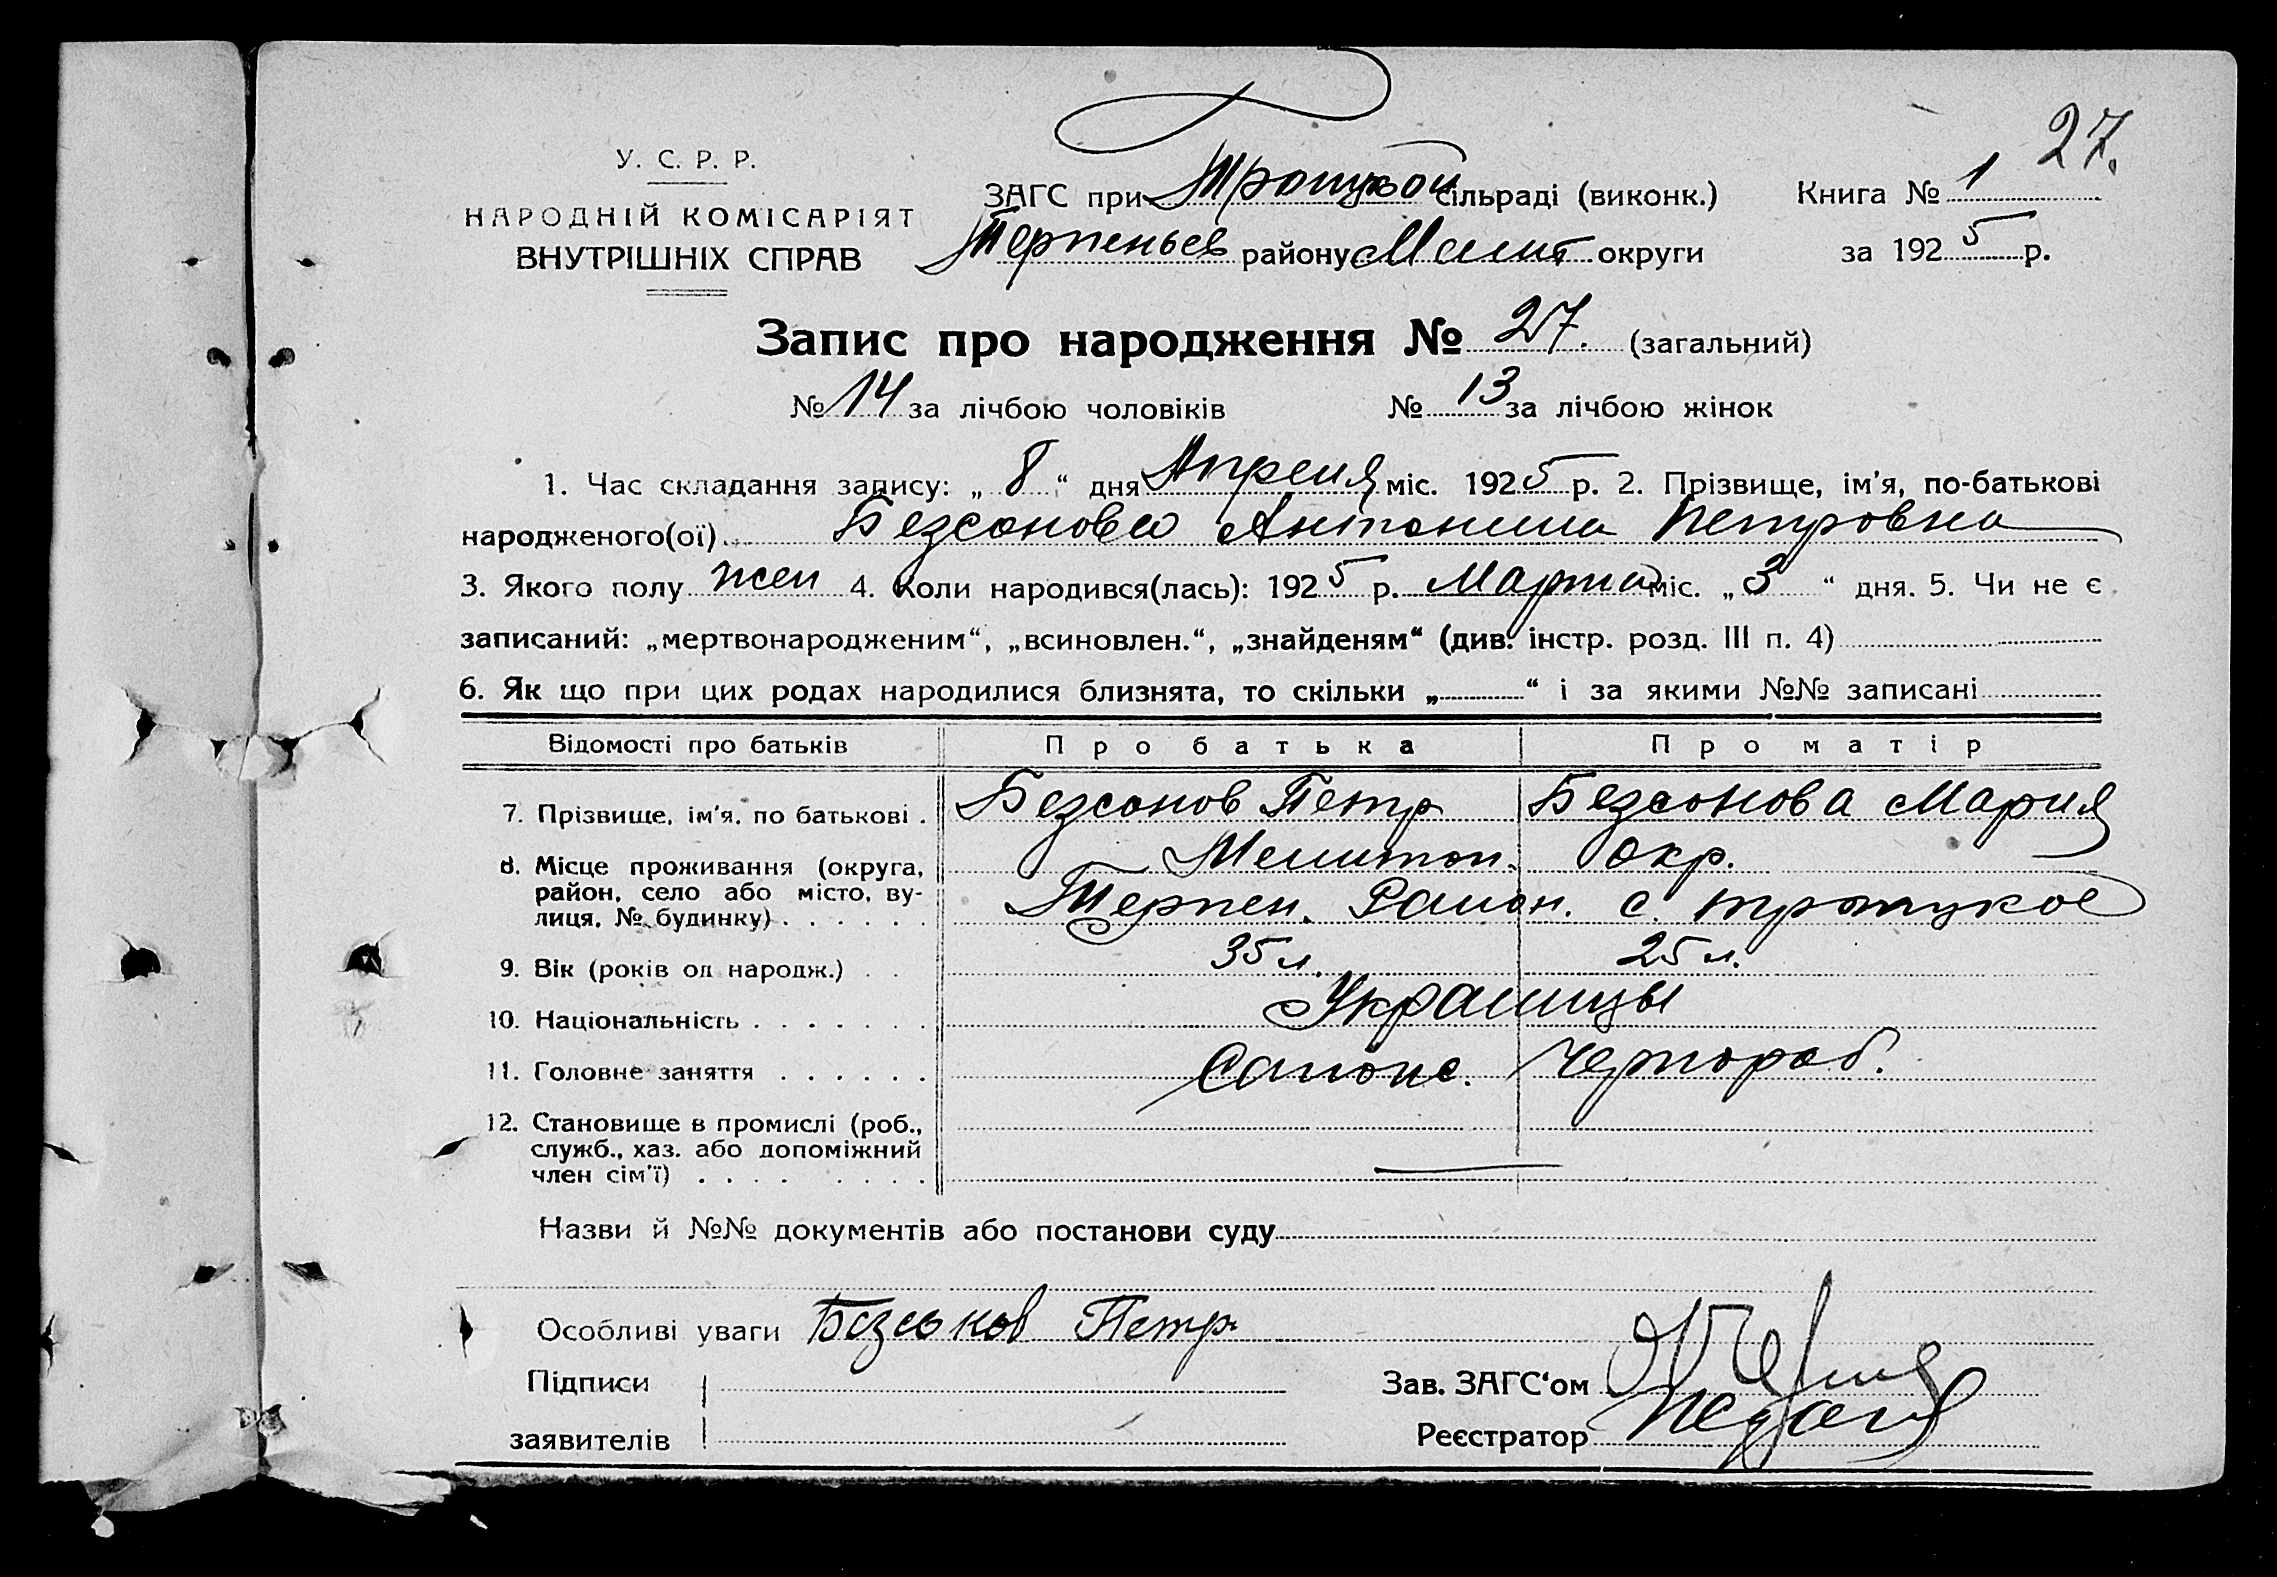 27.
У. С. Р. Р.
НАРОДНІЙ КОМІСАРІЯТ
ВНУТРІШНІХ СПРАВ
ЗАГС при Троцкой сільраді (виконк.) Книга № 1
Терпеньев району Мелит округи за 1925 р.
Запис про народження № 27. (загальний)
№ 14 за лічбою чоловіків № 13 за лічбою жінок
1. Час складання запису: „ 8 “ дня Апреля міс. 1925 р. 2. Прізвище, ім'я, по-батькові
народженого(ої) Безсонова Антонина Петровна
3. Якого полу жен 4. Коли народився(лась): 1925 р. Марта міс. „ 3 “ дня. 5. Чи не є
записаний: „мертвонародженим“, „всиновлен.“, „знайденям“ (див. інстр. розд. III п. 4)
6. Як що при цих родах народилися близнята, то скільки „ “ і за якими №№ записані
Відомості про батьків Про батька Про матір
7. Прізвище, ім'я, по батькові . Безсонов Петр Безсонова Мария
8. Місце проживання (округа, Мелитоп. окр.
район, село або місто, ву- Терпен. Район. с. Троцкое
лиця, № будинку)
9. Вік (років од народж.) 35 л. 25 л.
10. Національність Украинцы
11. Головне заняття Чернораб.
12. Становище в промислі (роб.,
служб., хаз. або допоміжний
член сім'ї)
Назви й №№ документів або постанови суду
Особливі уваги Безсонов Петр
Підписи Зав. ЗАГС'ом
заявителів Реєстратор